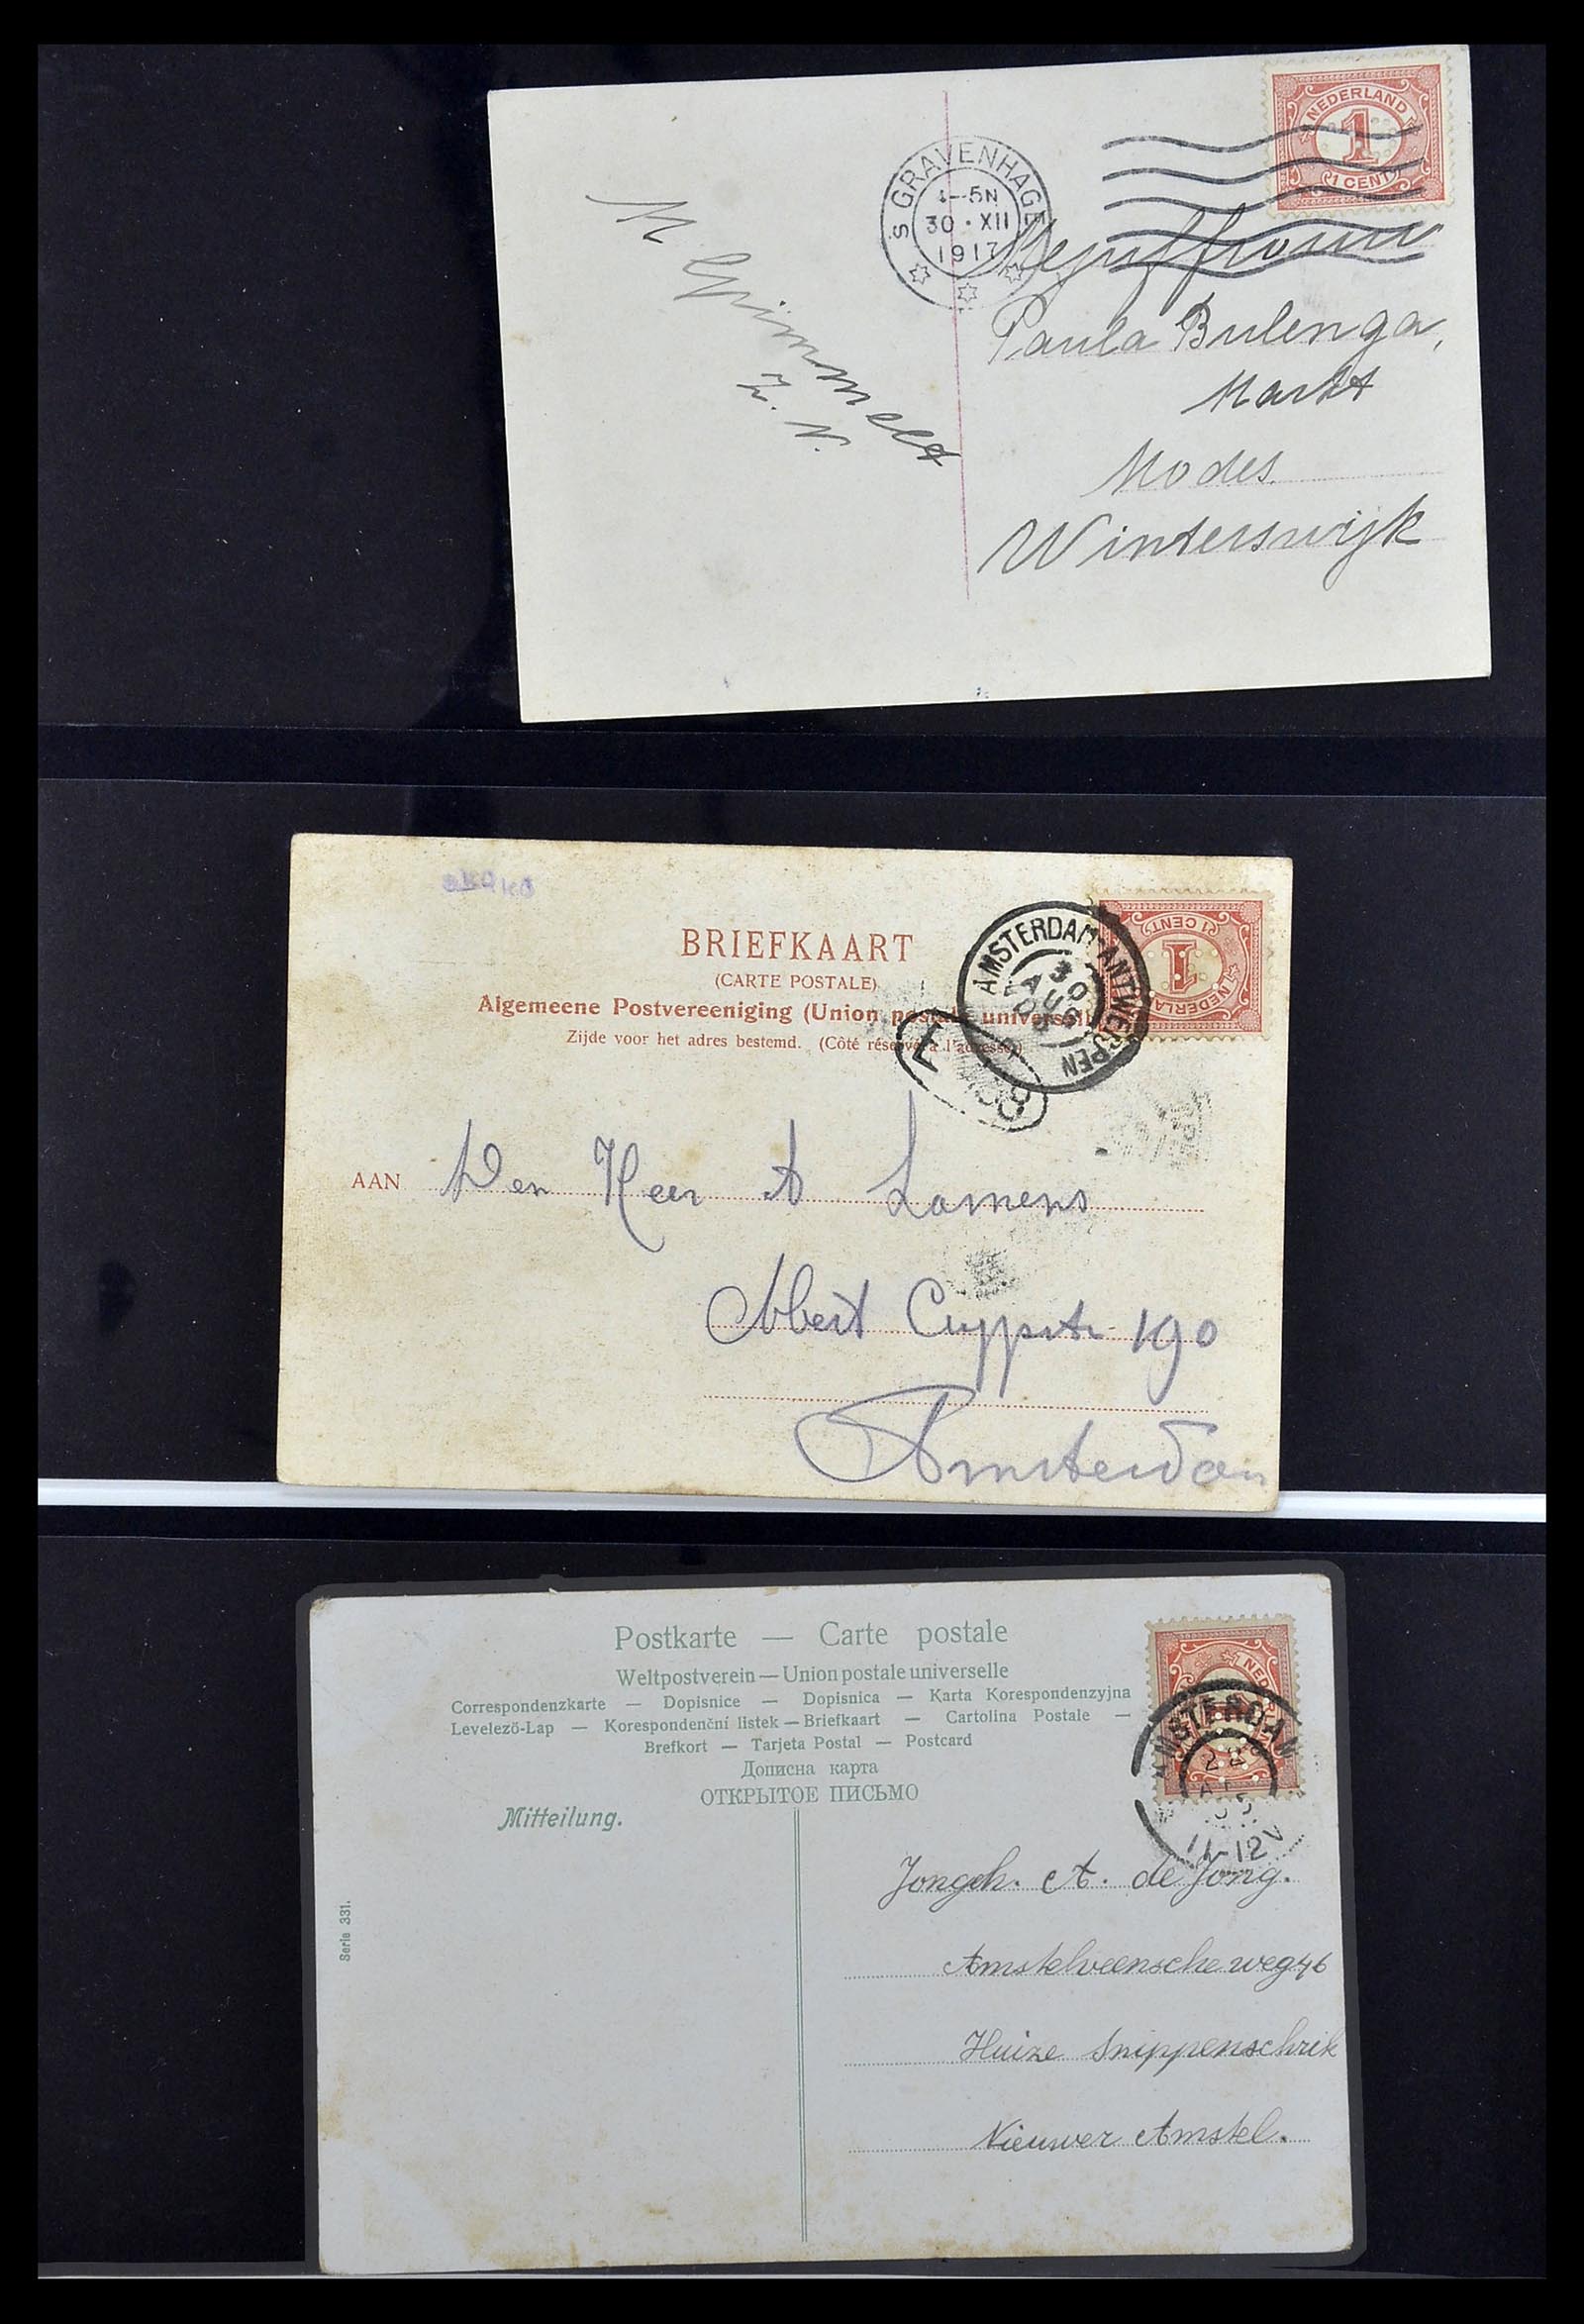 NEDERLAND
1
1 CENT
'S GRAVENHAGE
4-5N
30 · XII
1917
Mejuffrouw
Paula Bulenga,
Markt
Modes
Winterswijk
M Grimmelt
Z. N.
BRIEFKAART
(CARTE POSTALE)
Algemeene Postvereeniging (Union postale universelle)
Zijde voor het adres bestemd. (Côté réservé à l'adresse)
AMSTERDAM-ANTWERPEN
30
AUG
05
1 CENT
1
E
AAN Den Heer A Lamens
Albert Cuypstr 190
Amsterdam
Postkarte — Carte postale
Weltpostverein — Union postale universelle
Correspondenzkarte — Dopisnice — Dopisnica — Karta Korespondenzyjna
Levelezö-Lap — Korespondenční listek — Briefkaart — Cartolina Postale —
Brefkort — Tarjeta Postal — Postcard
Дописна карта
ОТКРЫТОЕ ПИСЬМО
Mitteilung.
AMSTERDAM
22
11-12V
Jongeh. A. de Jong.
Amstelveenscheweg 46
Huize Snippenschrik
Nieuwer Amstel.
Serie 331.